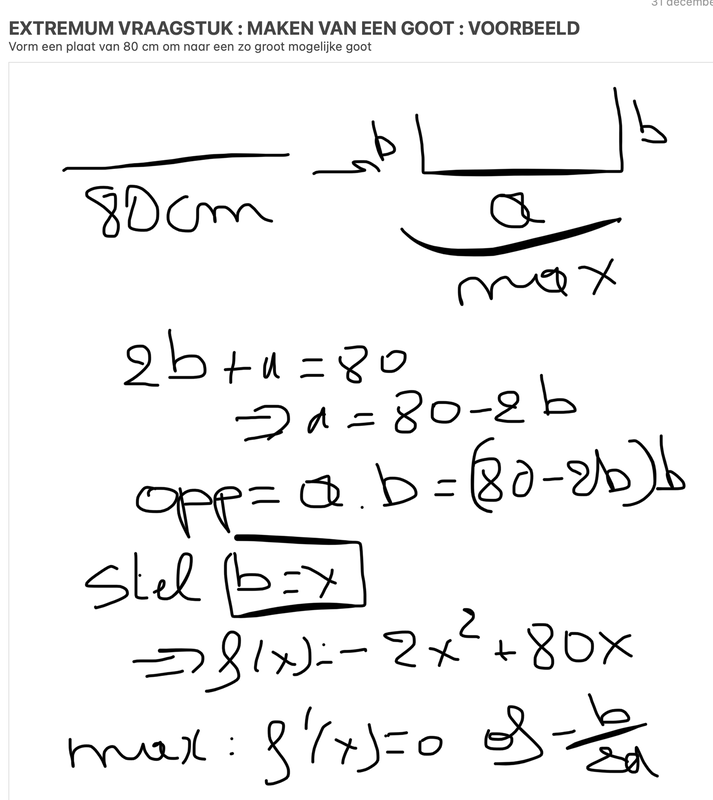 31 decembe
EXTREMUM VRAAGSTUK : MAKEN VAN EEN GOOT : VOORBEELD
Vorm een plaat van 80 cm om naar een zo groot mogelijke goot
80cm
b
b
a
max
2b+a=80
⇒ a = 80-2b
opp= a.b=(80-2b)b
Stel b=x
⇒ f(x)=-2x²+80x
max: f'(x)=0 of -b/2a